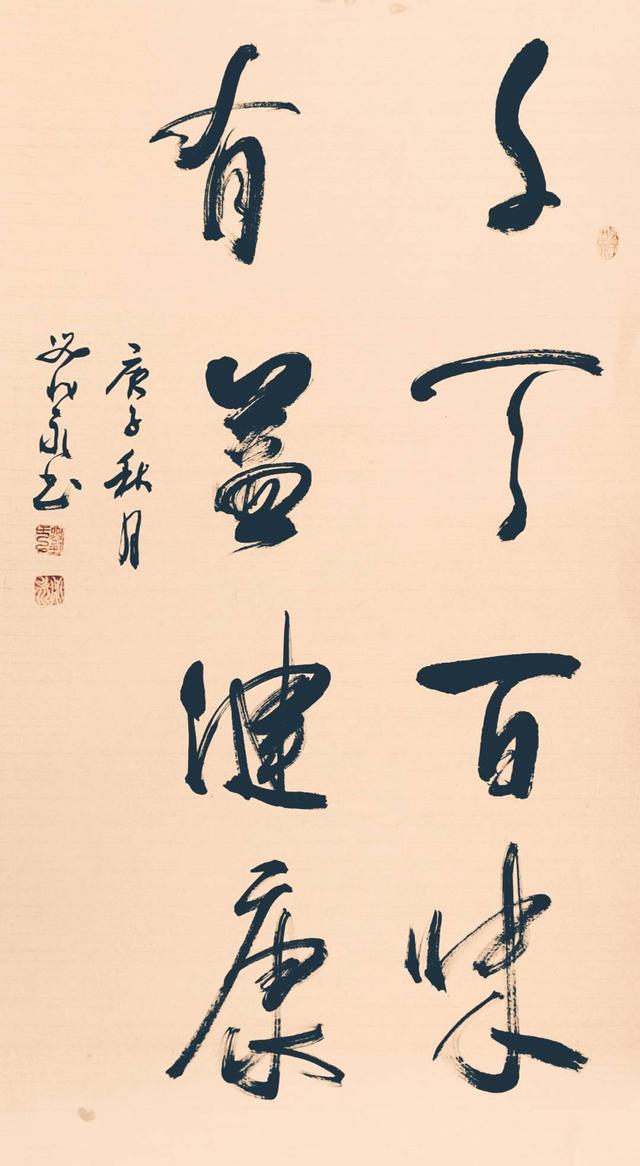 丁百味
有益健康
庚子秋月
永书